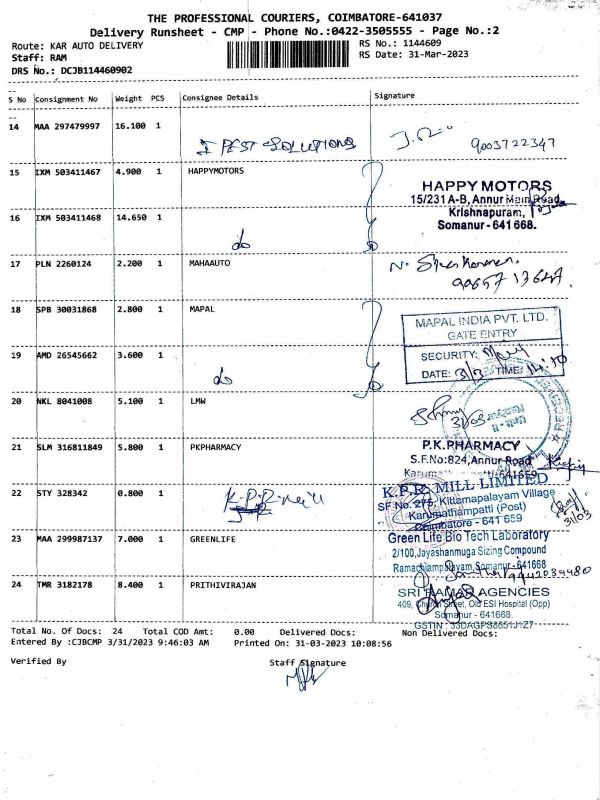 THE PROFESSIONAL COURIERS, COIMBATORE-641037
Delivery Runsheet - CMP - Phone No.:0422-3505555 - Page No.:2
Route: KAR AUTO DELIVERY
RS No.: 1144609
Staff: RAM
RS Date: 31-Mar-2023
DRS No.: DCJB114460902
S No Consignment No Weight PCS Consignee Details Signature
14 MAA 297479997 16.100 1
I PEST SOLUTIONS 9003722347
15 IXM 503411467 4.900 1 HAPPYMOTORS
HAPPY MOTORS
15/231 A-B, Annur Main Road,
16 IXM 503411468 14.650 1
Krishnapuram,
Somanur - 641 668.
do
17 PLN 2260124 2.200 1 MAHAAUTO
18 SPB 30031868 2.800 1 MAPAL
MAPAL INDIA PVT. LTD.
GATE ENTRY
19 AMD 26545662 3.600 1
SECURITY:
DATE: TIME:
do
20 NKL 8041008 5.100 1 LMW
31/03
21 SLM 316811849 5.800 1 PKPHARMACY
P.K.PHARMACY
S.F.No:824, Annur Road
22 STY 328342 0.800 1
K.P.R. MILL LIMITED
SF No. 275, Kittampalayam Village
Karumathampatti (Post)
Coimbatore - 641 659
31/03
23 MAA 299987137 7.000 1 GREENLIFE
Green Life Bio Tech Laboratory
2/100, Jayashanmuga Sizing Compound
Ramachiampalayam, Somanur - 641668
9942034480
24 TMR 3182178 8.400 1 PRITHIVIRAJAN
SRI RAMAR AGENCIES
409, Church Street, Old ESI Hospital (Opp)
Somanur - 641668.
Total No. Of Docs: 24 Total COD Amt: 0.00 Delivered Docs: Non Delivered Docs:
Entered By :CJBCMP 3/31/2023 9:46:03 AM Printed On: 31-03-2023 10:08:56
Verified By Staff Signature